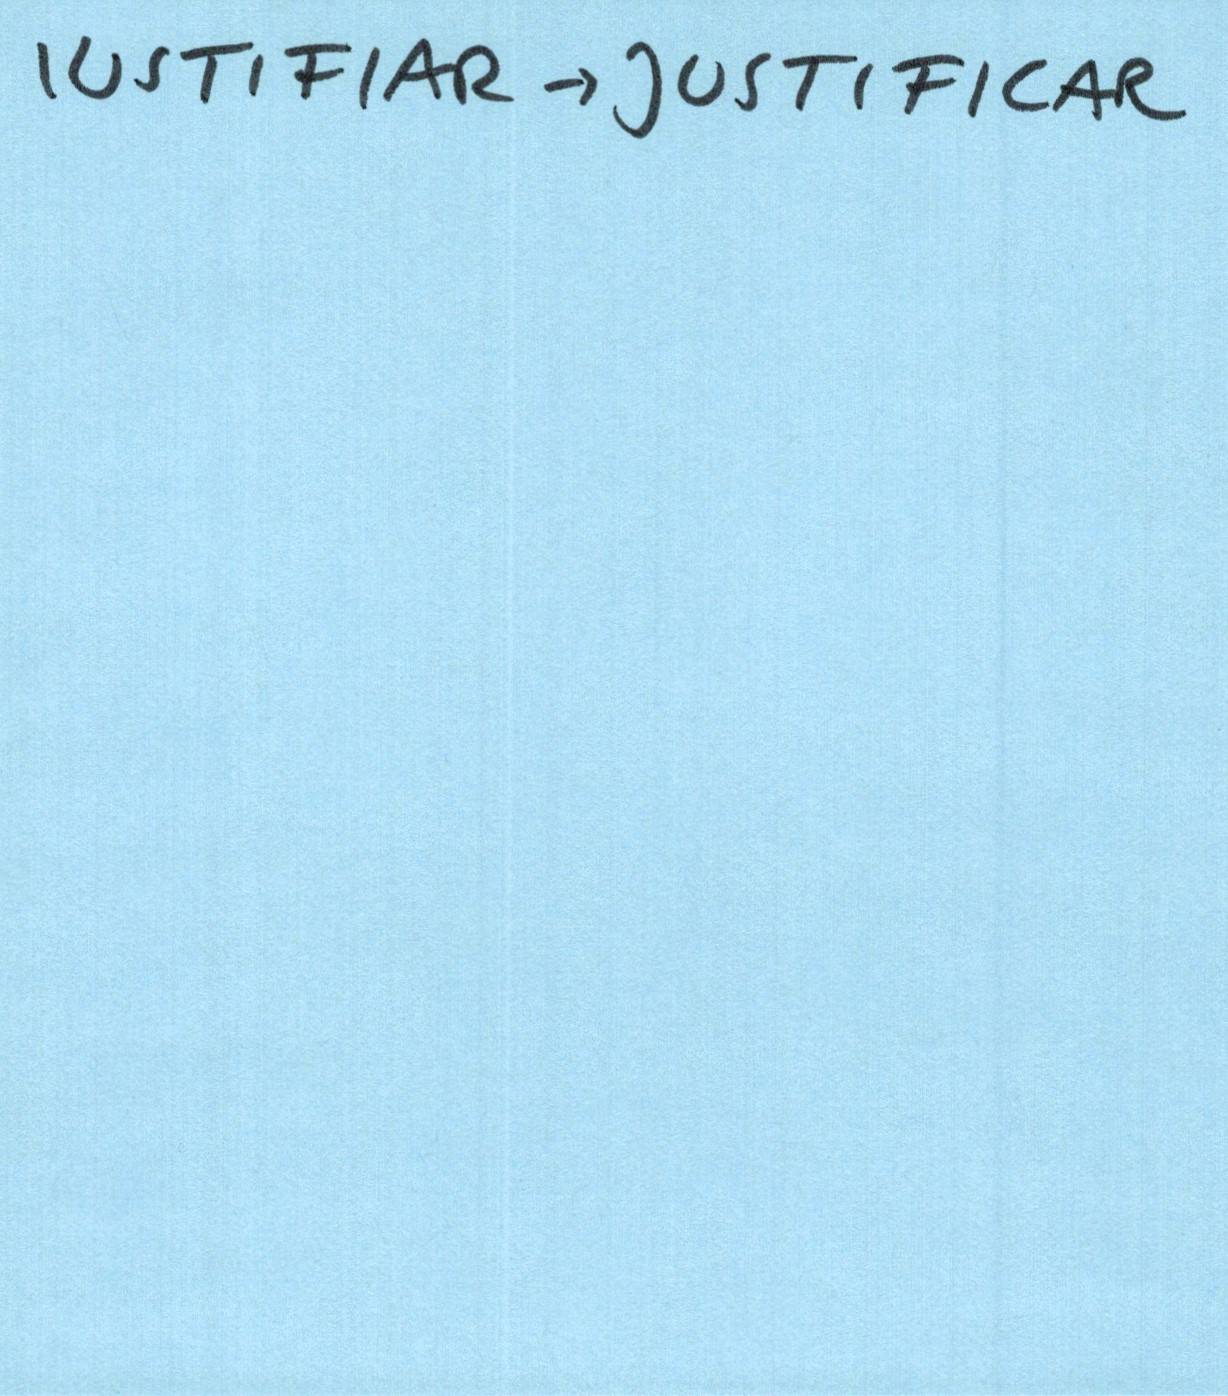 IUSTIFIAR → JUSTIFICAR